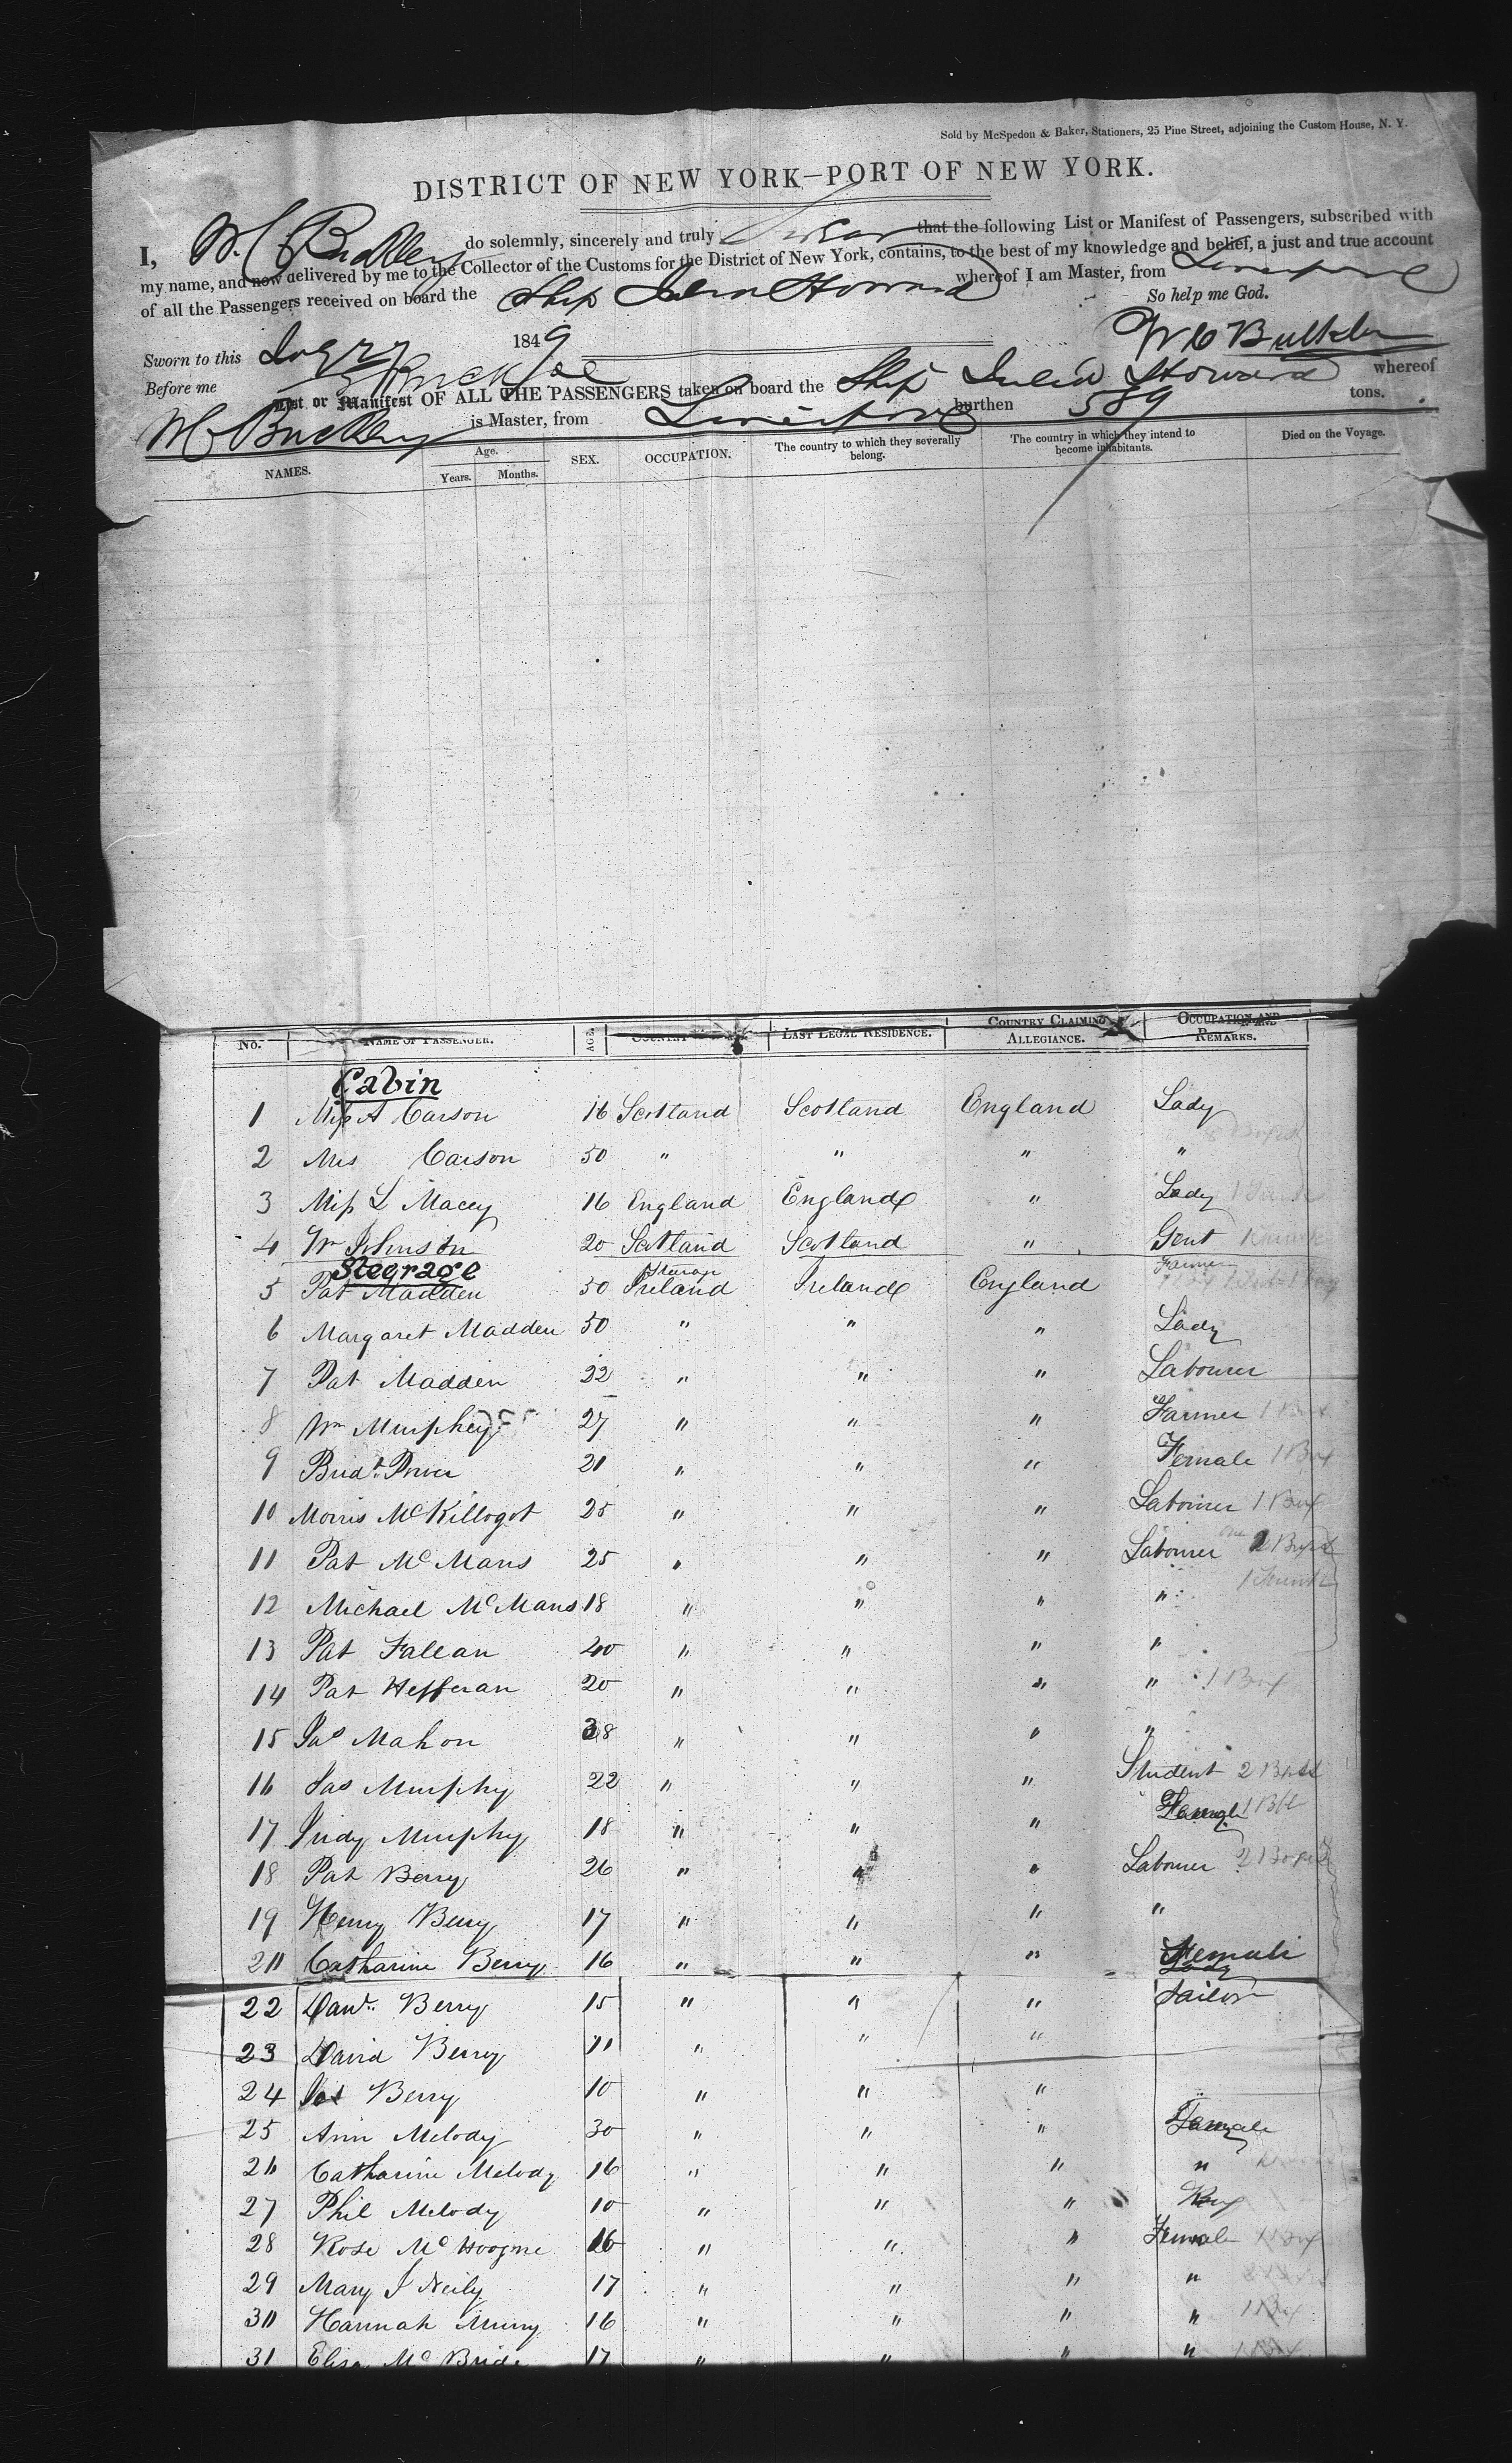 Sold by McSpedon & Baker, Stationers, 25 Pine Street, adjoining the Custom House, N. Y.
DISTRICT OF NEW YORK—PORT OF NEW YORK.
I, do solemnly, sincerely and truly swear that the following List or Manifest of Passengers, subscribed with
my name, and now delivered by me to the Collector of the Customs for the District of New York, contains, to the best of my knowledge and belief, a just and true account
of all the Passengers received on board the Ship Julia Howard whereof I am Master, from Liverpool
So help me God.
Sworn to this 1849
W C Bulkley
Before me
List or Manifest OF ALL THE PASSENGERS taken on board the Ship Julia Howard whereof
is Master, from Liverpool burthen 589 tons.
NAMES. Age. Years. Months. SEX. OCCUPATION. The country to which they severally belong. The country in which they intend to become inhabitants. Died on the Voyage.
No. NAME OF PASSENGER. AGE. COUNTRY LAST LEGAL RESIDENCE. COUNTRY CLAIMING ALLEGIANCE. OCCUPATION AND REMARKS.
Cabin
1 Miss A Carson 16 Scotland Scotland England Lady
2 Mrs Carson 50 " " " "
3 Miss L Macey 16 England England " Lady
4 Wm Johnson 20 Scotland Scotland " Gent
Steerage
5 Pat Madden 50 Ireland Ireland England Farmer
6 Margaret Madden 50 " " " Lady
7 Pat Madden 22 " " " Labourer
8 Wm Murphey 27 " " " Farmer 1 Box
9 Bridt. Power 21 " " " Female 1 Box
10 Morris McKillogot 25 " " " Labourer 1 Box
11 Pat McMans 25 " " " Labourer
12 Michael McMans 18 " " " "
13 Pat Fallan 40 " " " "
14 Pat Hefferan 20 " " " " 1 Box
15 Jas Mahon 38 " " " "
16 Jas Murphy 22 " " " Student
17 Judy Murphy 18 " " "
18 Pat Berry 26 " " " Labourer
19 Henry Berry 17 " " " "
20 Catharine Berry 16 " " " Female
22 Danl. Berry 15 " " " Tailor
23 David Berry 11 " " "
24 Berry 10 " " "
25 Ann Melody 30 " " " Female
26 Catharine Melody 16 " " " "
27 Phil Melody 10 " " " Boy
28 Rose Mc 16 " " " Female 1 Box
29 Mary J Neily 17 " " " "
30 Hannah Murry 16 " " " " 1 Box
31 Eliza McBride 17 " " " " 1 Box